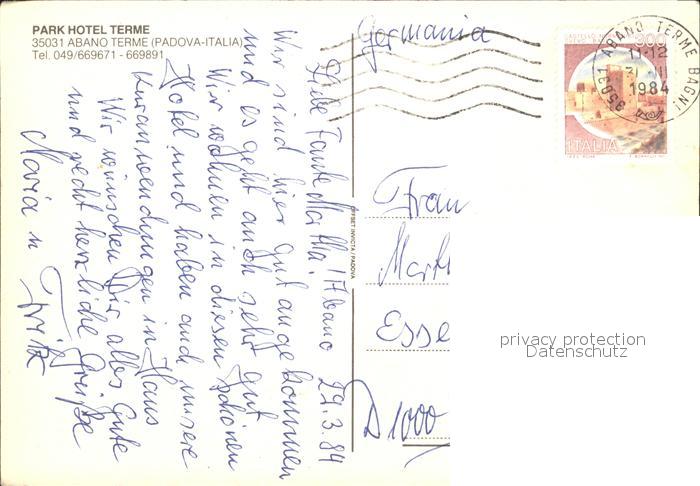 PARK HOTEL TERME
35031 ABANO TERME (PADOVA-ITALIA)
Tel. 049/669671 - 669891
Abano 29.3.84
Liebe Tante Martha!
Wir sind hier gut angekommen
und es geht auch sehr gut
Wir wohnen in diesen schönen
Hotel und haben auch unsere
Kuranwendungen in Haus
Wir wünschen Dir alles Gute
und recht herzliche Grüße
Maria u
Fritz
OFFSET INVICTA / PADOVA
Germania
ABANO TERME BAGNI
11-12
1984
35031
300
ITALIA
I.P.Z.S. ROMA
Frau
Mart
Esse
D 1000
privacy protection
Datenschutz